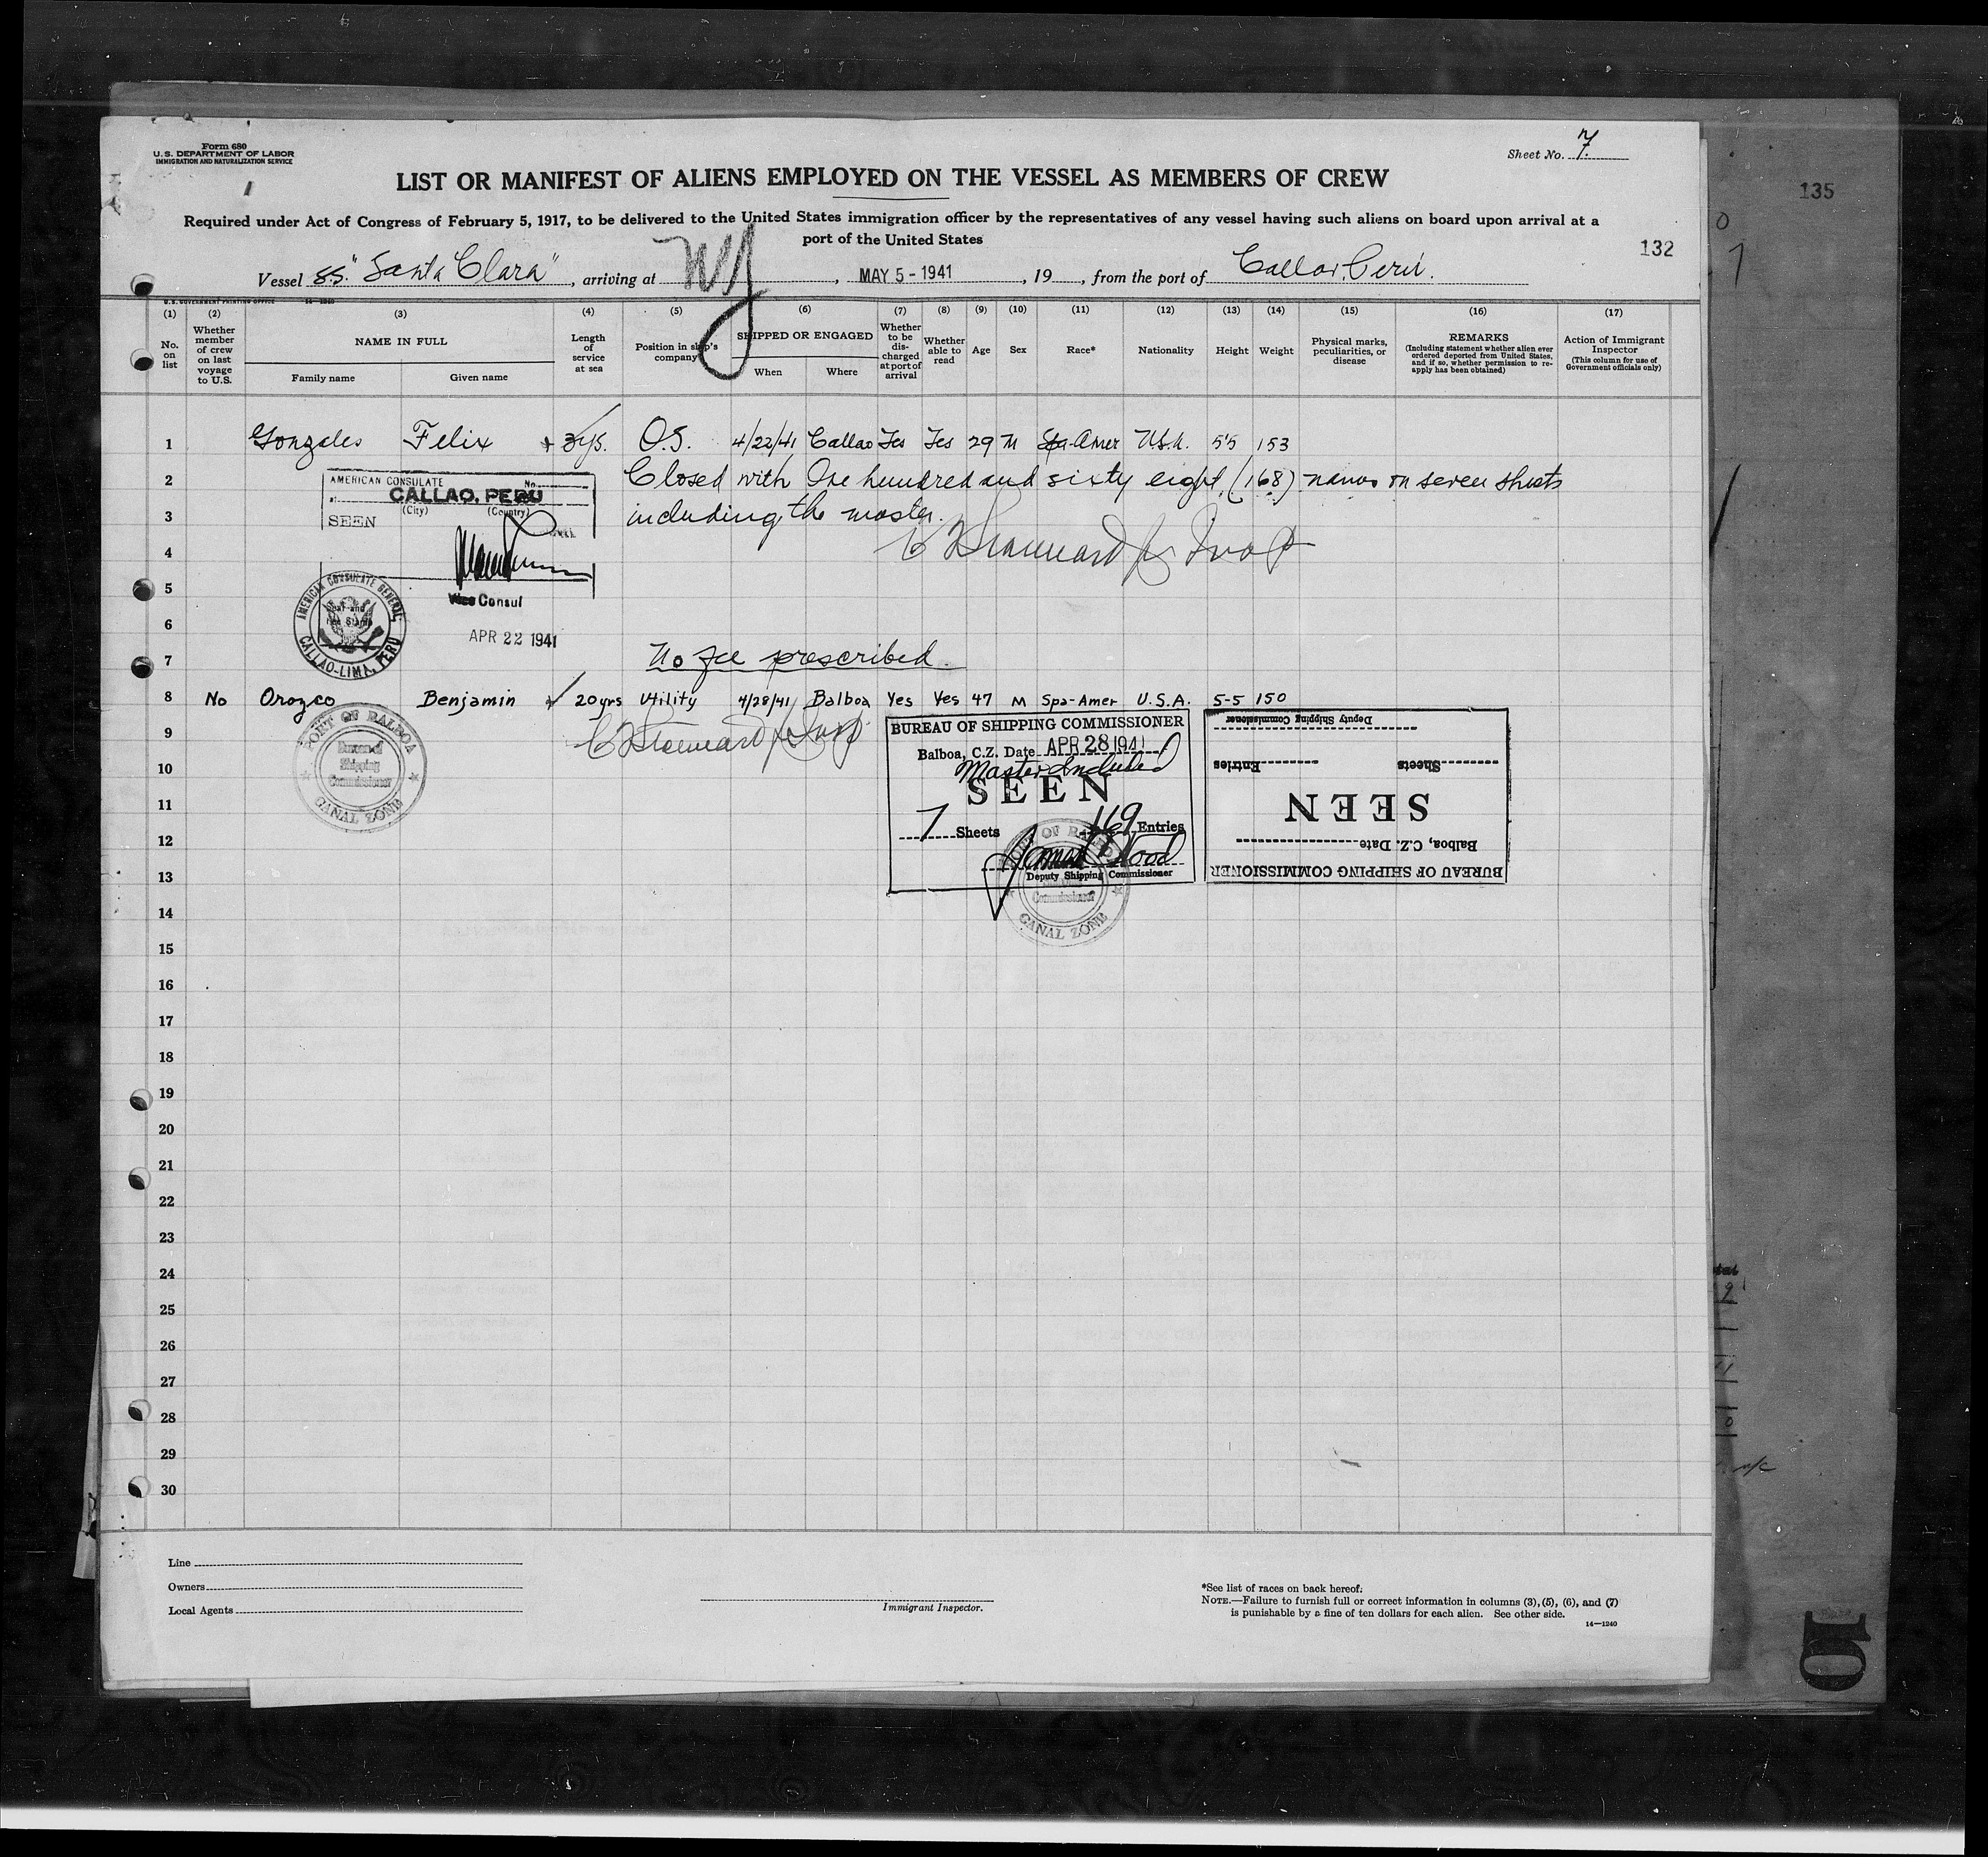 Form 680
U.S. DEPARTMENT OF LABOR
IMMIGRATION AND NATURALIZATION SERVICE
Sheet No. 7.
LIST OR MANIFEST OF ALIENS EMPLOYED ON THE VESSEL AS MEMBERS OF CREW
Required under Act of Congress of February 5, 1917, to be delivered to the United States immigration officer by the representatives of any vessel having such aliens on board upon arrival at a
port of the United States
132
135
Vessel SS. "Santa Clara", arriving at NY, MAY 5 - 1941, 19, from the port of Callao, Peru.
U.S. GOVERNMENT PRINTING OFFICE 14-1240
(1) (2) (3) (4) (5) (6) (7) (8) (9) (10) (11) (12) (13) (14) (15) (16) (17)
No. on list
Whether member of crew on last voyage to U.S.
NAME IN FULL
Family name Given name
Length of service at sea
Position in ship's company
SHIPPED OR ENGAGED
When Where
Whether to be discharged at port of arrival
Whether able to read
Age
Sex
Race*
Nationality
Height
Weight
Physical marks, peculiarities, or disease
REMARKS
(Including statement whether alien ever ordered deported from United States, and if so, whether permission to re-apply has been obtained)
Action of Immigrant Inspector
(This column for use of Government officials only)
1 Gonzales Felix 3 ys. O.S. 4/22/41 Callao Yes Yes 29 M Spa-Amer U.S.A. 5'5 153
2 Closed with One hundred and sixty eight (168) names on seven sheets
3 including the master.
AMERICAN CONSULATE No.
at CALLAO, PERU
(City) (Country)
SEEN
4
5
Vice Consul
AMERICAN CONSULATE GENERAL
CALLAO-LIMA, PERU
6
APR 22 1941
7 No fee prescribed.
8 No Orozco Benjamin 20 yrs Utility 4/28/41 Balboa Yes Yes 47 M Spa-Amer U.S.A. 5-5 150
9
10
11
12
13
14
15
16
17
18
19
20
21
22
23
24
25
26
27
28
29
30
PORT OF BALBOA
Bureau of
Shipping
Commissioner
CANAL ZONE
BUREAU OF SHIPPING COMMISSIONER
Balboa, C.Z. Date APR 28 1941
Master Included
SEEN
7 Sheets 169 Entries
Deputy Shipping Commissioner
Commissioner
CANAL ZONE
BUREAU OF SHIPPING COMMISSIONER
Balboa, C.Z. Date
SEEN
Sheets Entries
Deputy Shipping Commissioner
Line
Owners
Local Agents
Immigrant Inspector.
*See list of races on back hereof.
NOTE.—Failure to furnish full or correct information in columns (3), (5), (6), and (7)
is punishable by a fine of ten dollars for each alien. See other side.
14—1240
10